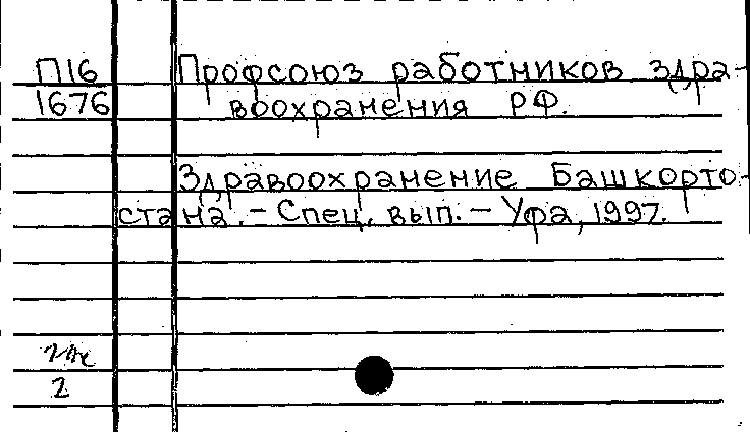 П16 Профсоюз работников здра-
1676 воохранения РФ.
Здравоохранение Башкорто-
стана. - Спец. вып. - Уфа, 1997.
2